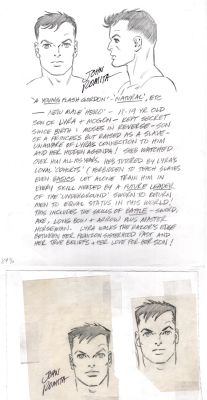 JOHN
ROMITA
'A YOUNG FLASH GORDON' - 'NATURAL', ETC
— NEW MALE HERO' — 17-19 YR OLD
SON OF LYRA + MOGON - KEPT SECRET
SINCE BIRTH : MOSES IN REVERSE - SON
OF A PRINCESS BUT RAISED AS A SLAVE -
UNAWARE OF LYRA'S CONNECTION TO HIM
AND HER HIDDEN AGENDA! SHE'S WATCHED
OVER HIM ALL HIS YEARS. HE'S TUTORED BY LYRA'S
LOYAL COHORTS (FORBIDDEN TO TEACH SLAVES
EVEN BASICS LET ALONE TRAIN HIM IN
EVERY SKILL NEEDED BY A FUTURE LEADER
OF THE 'UNDERGROUND' SWORN TO RETURN
MEN TO EQUAL STATUS IN THIS WORLD!
THIS INCLUDES THE SKILLS OF BATTLE - SWORD,
AXE, LONG BOW + ARROW PLUS MASTER
HORSEMAN. LYRA WALKS THE RAZOR'S EDGE
BETWEEN HER PAST AND
HER TRUE BELIEFS + HER LOVE FOR HER SON!
JOHN
ROMITA